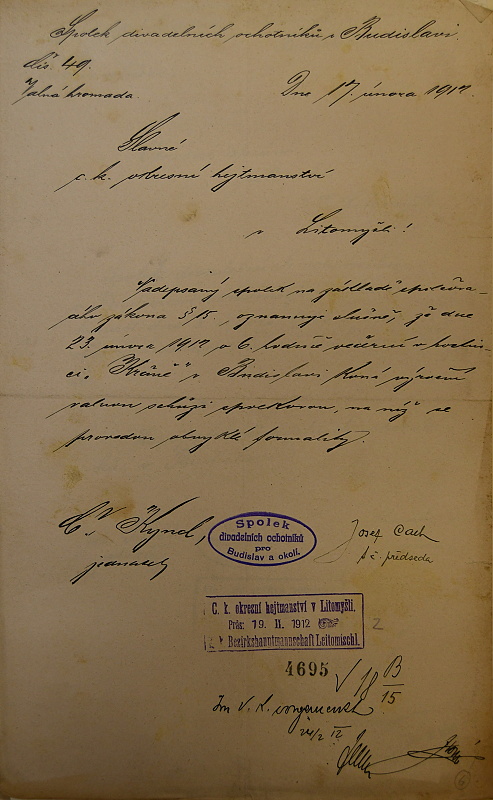 Spolek divadelních ochotníků v Budislavi.
čís. 49.
Valná hromada.
Dne 17. února 1912.
Slavné
c. k. okresní hejtmanství
v Litomyšli!
Nadepsaný spolek na základě spolčova-
cího zákona § 15. oznamuje slušně, že dne
23. února 1912 o 6. hodině večerní v hostin-
ci "Králně" v Budislavi koná výroční
valnou schůzi spolkovou, na níž se
provedou obvyklé formality.
Kynel,
jednatel
Spolek
divadelních ochotníků
pro
Budislav a okolí.
Josef Cach
t. č. předseda
C. k. okresní hejtmanství v Litomyšli.
Präs: 19. II. 1912
k. k. Bezirkshauptmannschaft Leitomischl.
2
4695
V 18 B/15